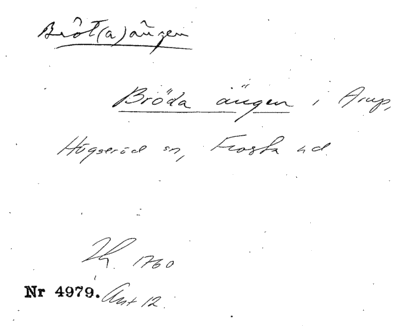 Bröt(a)ängen
Bröda ängen i Arup,
Högseröd sn, Frosta hd
1760
Nr 4979. Akt 12.